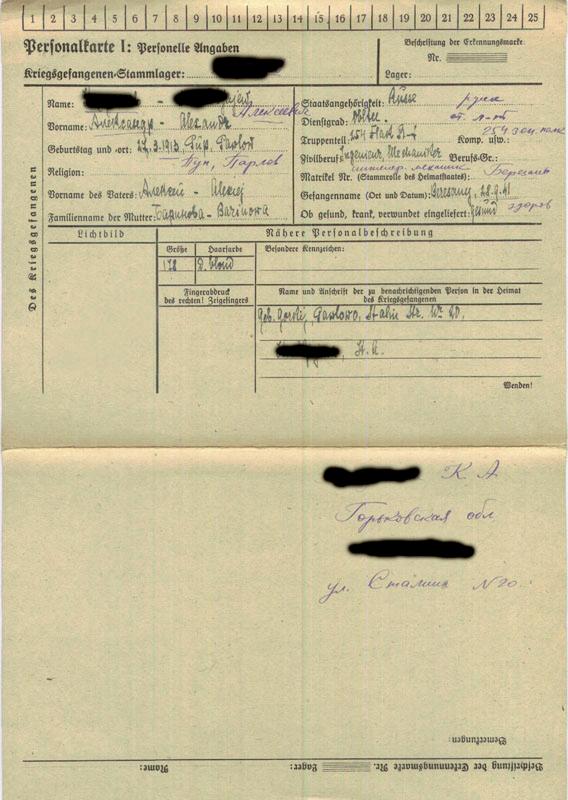 1 2 3 4 5 6 7 8 9 10 11 12 13 14 15 16 17 18 19 20 21 22 23 24 25
Personalkarte I: Personelle Angaben
Beschriftung der Erkennungsmarke
Nr.
Kriegsgefangenen-Stammlager:
Lager:
Des Kriegsgefangenen
Name: -
Алексеевич
Vorname: Александр - Alexandr
Geburtstag und -ort: 27.3.1913, Pawlow
Павлов
Religion:
Vorname des Vaters: Алексей - Alexej
Familienname der Mutter: Баринова - Barinowa
Staatsangehörigkeit: Russe
Dienstgrad:
Truppenteil: 254
254
Zivilberuf: Ingenieur, Mechaniker Berufs-Gr.: Komp. usw.:
инженер механик
Matrikel Nr. (Stammrolle des Heimatstaates):
Gefangennahme (Ort und Datum): 28.9.41
Ob gesund, krank, verwundet eingeliefert: gesund
здоров
Lichtbild
Nähere Personalbeschreibung
Größe
Haarfarbe
Besondere Kennzeichen:
178
d. blond
Fingerabdruck
des rechten! Zeigefingers
Name und Anschrift der zu benachrichtigenden Person in der Heimat
des Kriegsgefangenen
Geb. Gorki, Pawlowo, Stalin Str. № 20.
Wenden!
К А
Горьковская обл
ул. Сталина N 20.
Bemerkungen:
Beschriftung der Erkennungsmarke Nr. Lager: Name: